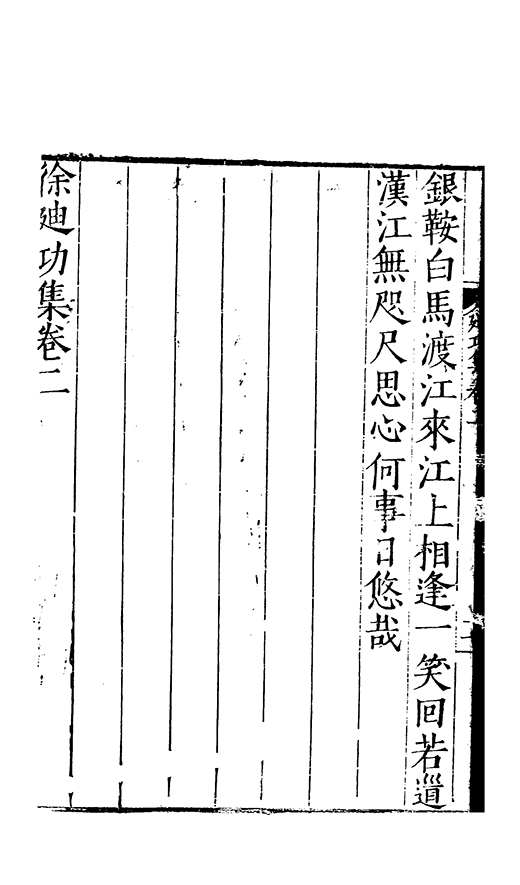 銀鞍白馬渡江來江上相逢一笑回若道
漢江無咫尺思心何事日悠哉
徐迪功集卷二